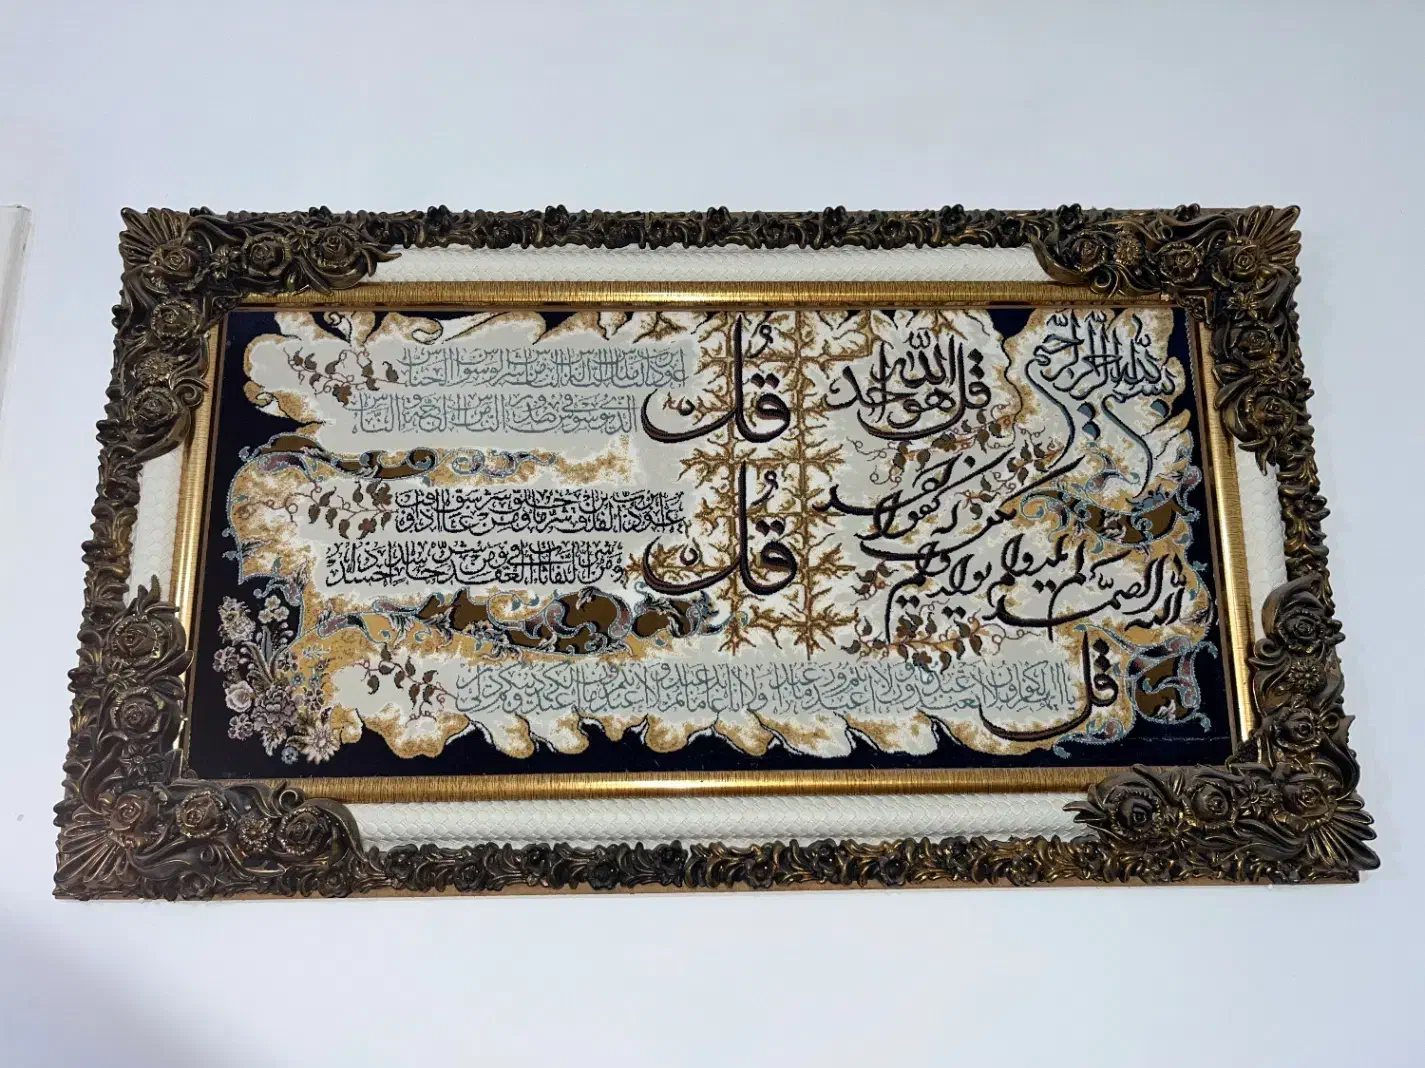 بسم الله الرحمن الرحیم
قل هو الله احد
الله الصمد لم یلد ولم یولد
ولم یکن له کفوا احد
قل اعوذ برب الناس ملک الناس اله الناس من شر الوسواس الخناس
الذی یوسوس فی صدور الناس من الجنة و الناس
قل اعوذ برب الفلق من شر ما خلق و من شر غاسق اذا وقب
و من شر النفاثات فی العقد و من شر حاسد اذا حسد
قل یا ایها الکافرون لا اعبد ما تعبدون ولا انتم عابدون ما اعبد ولا انا عابد ما عبدتم ولا انتم عابدون ما اعبد لکم دینکم ولی دین